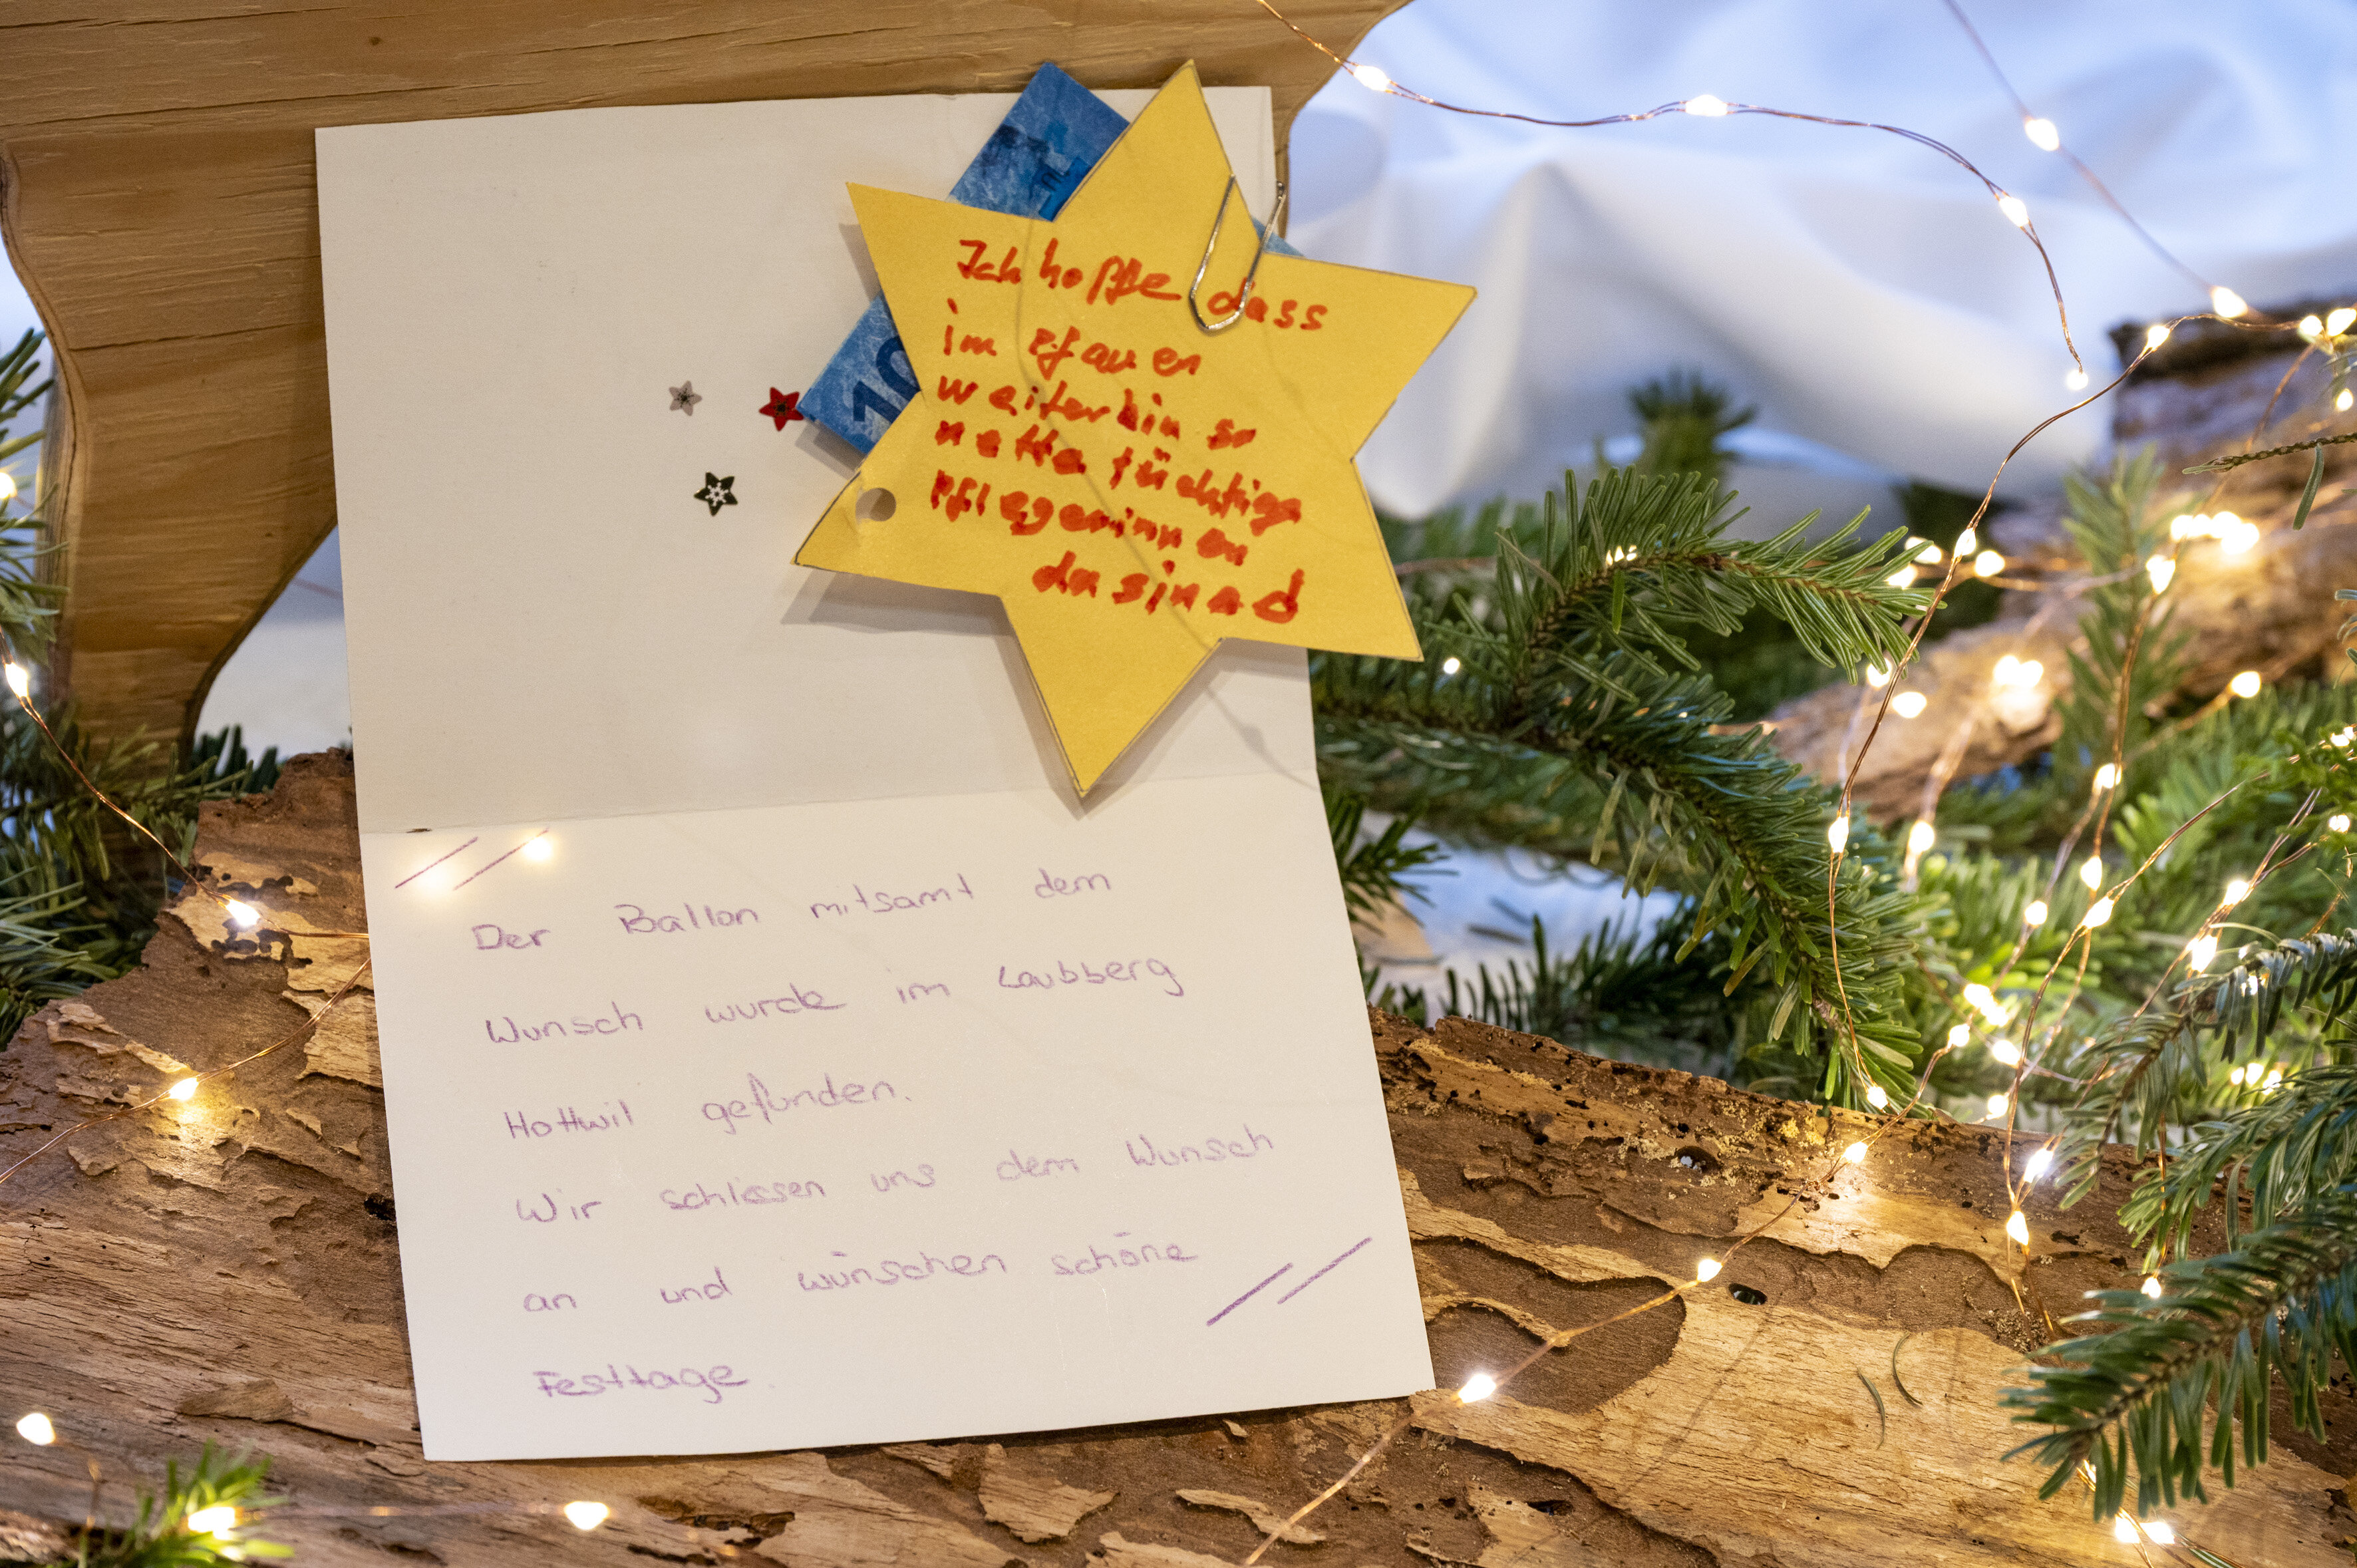 10
Ich hoffe dass
im Pfauen
weiterhin so
nette tüchtige
Pflegerinnen
da sinnd
Der Ballon mitsamt dem
Wunsch wurde im Laubberg
Hottwil gefunden.
Wir schliessen uns dem Wunsch
an und wünschen schöne
Festtage.